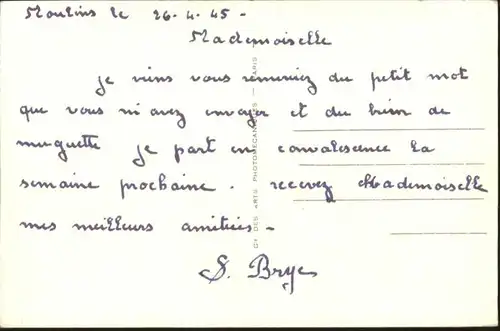 Moulins le 26-4-45-
Mademoiselle
je viens vous remerciez du petit mot
que vous m'avez envoyer et du brin de
muguette je part en convalesence la
semaine prochaine. recevez Mademoiselle
mes meilleurs amitiés-
S. Brye
GY DES ARTS PHOTOMECANIQUES — PARIS